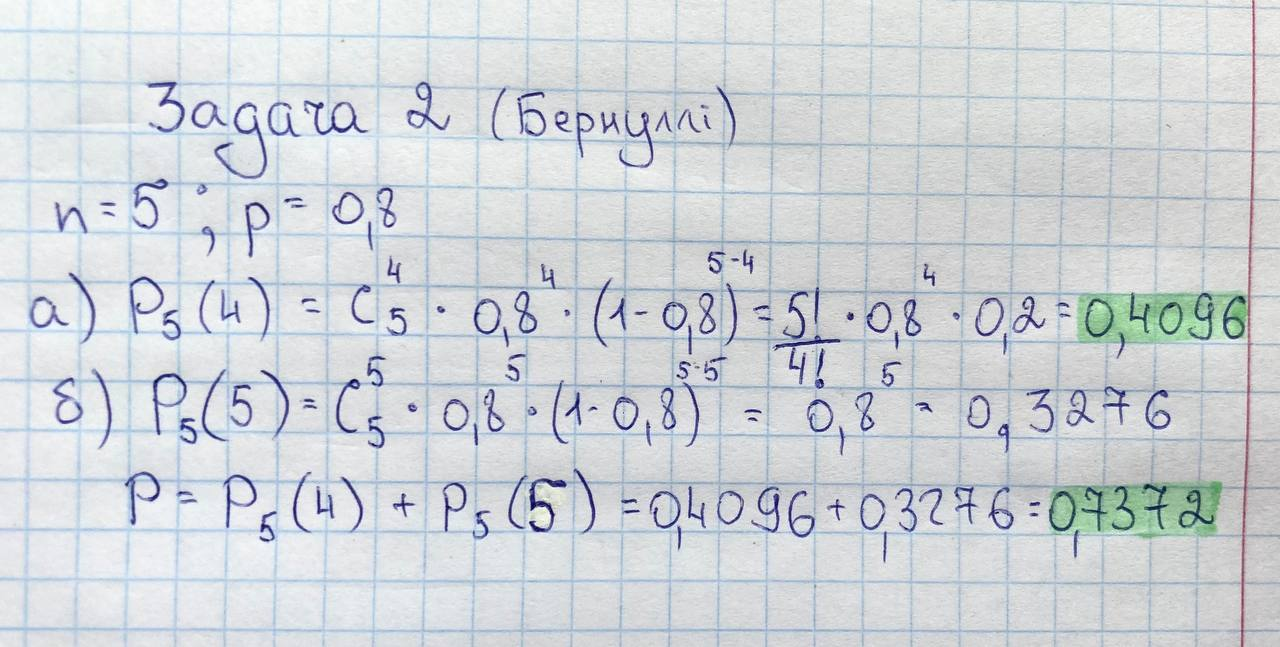 Задача 2 (Бернуллі)
n = 5 ; p = 0,8
а) P₅(4) = C₅⁴ · 0,8⁴ · (1-0,8)⁵⁻⁴ = 5!/4! · 0,8⁴ · 0,2 = 0,4096
б) P₅(5) = C₅⁵ · 0,8⁵ · (1-0,8)⁵⁻⁵ = 0,8⁵ = 0,3276
P = P₅(4) + P₅(5) = 0,4096 + 0,3276 = 0,7372